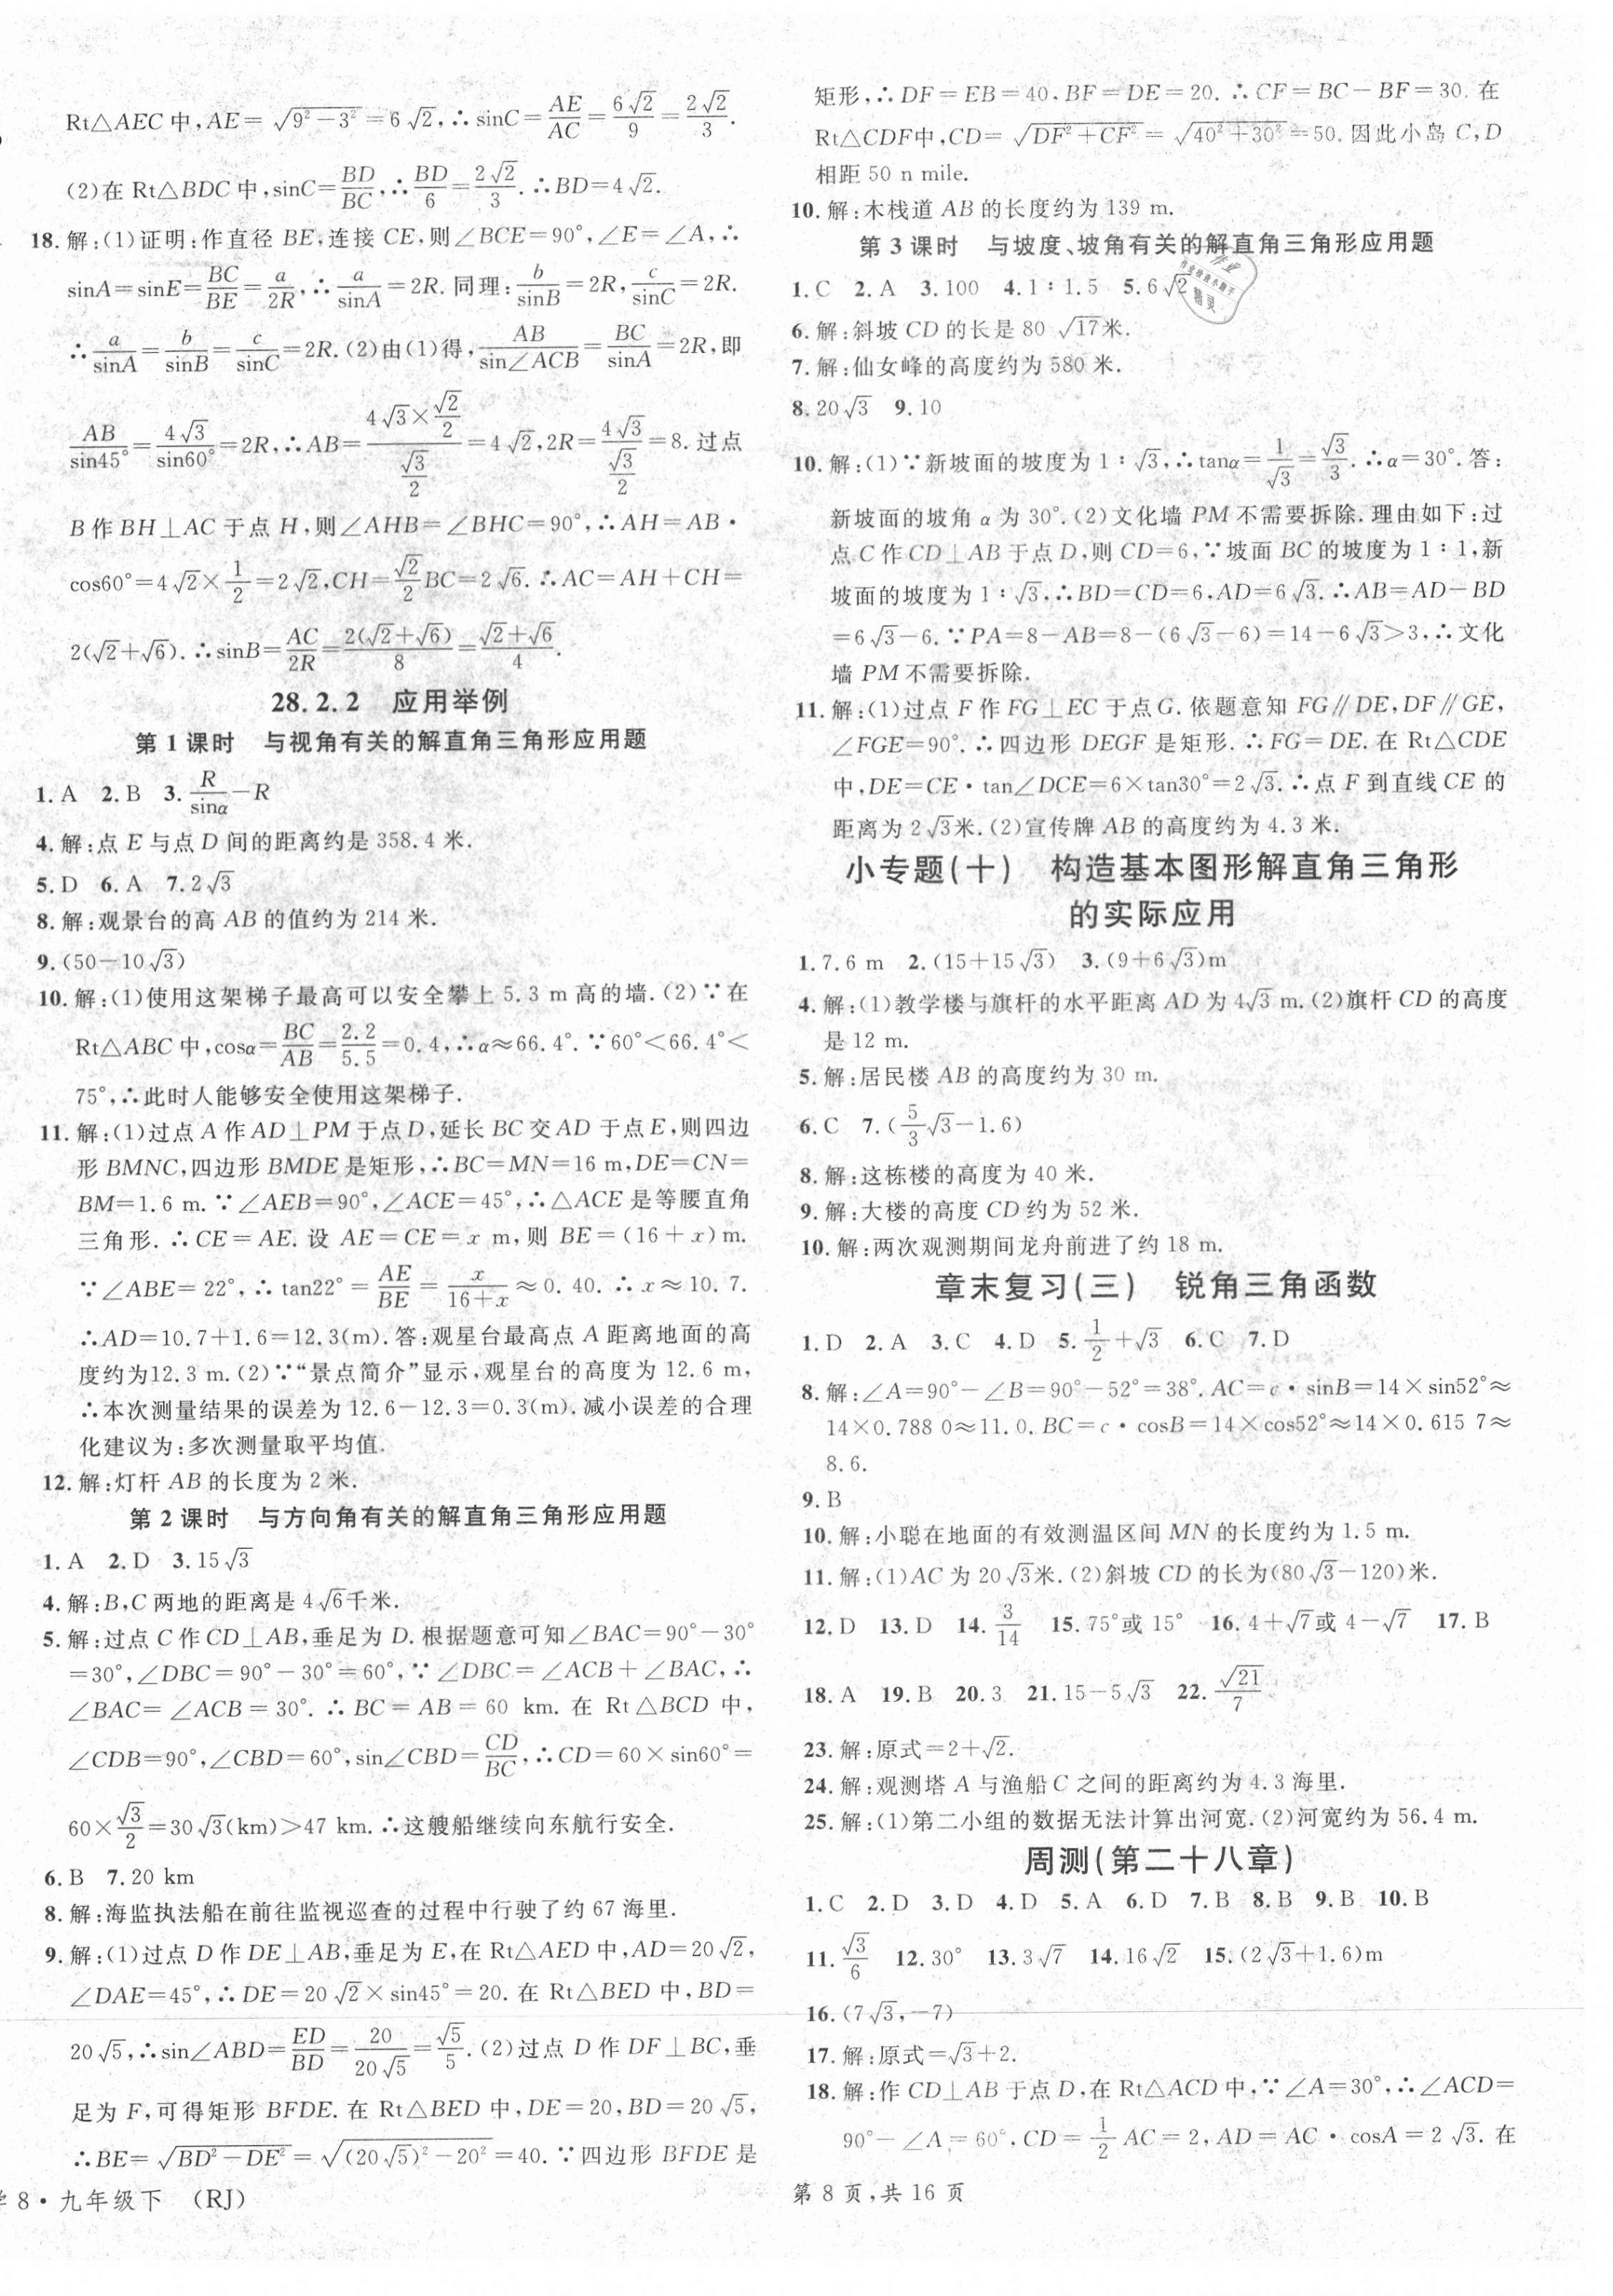 Rt△AEC中,AE=√(9²-3²)=6√2,∴sinC=AE/AC=6√2/9=2√2/3.
(2)在Rt△BDC中,sinC=BD/BC,∴BD/6=2√2/3.∴BD=4√2.
18.解:(1)证明:作直径BE,连接CE,则∠BCE=90°,∠E=∠A,∴
sinA=sinE=BC/BE=a/2R,∴a/sinA=2R.同理:b/sinB=2R,c/sinC=2R.
∴a/sinA=b/sinB=c/sinC=2R.(2)由(1)得,AB/sin∠ACB=BC/sinA=2R,即
AB/sin45°=4√3/sin60°=2R,∴AB=(4√3×√2/2)/(√3/2)=4√2,2R=4√3/(√3/2)=8.过点
B作BH⊥AC于点H,则∠AHB=∠BHC=90°,∴AH=AB·
cos60°=4√2×1/2=2√2,CH=√2/2BC=2√6.∴AC=AH+CH=
2(√2+√6).∴sinB=AC/2R=2(√2+√6)/8=(√2+√6)/4.
28.2.2 应用举例
第1课时 与视角有关的解直角三角形应用题
1.A 2.B 3.R/sinα-R
4.解:点E与点D间的距离约是358.4米.
5.D 6.A 7.2√3
8.解:观景台的高AB的值约为214米.
9.(50-10√3)
10.解:(1)使用这架梯子最高可以安全攀上5.3 m高的墙.(2)∵在
Rt△ABC中,cosα=BC/AB=2.2/5.5=0.4,∴α≈66.4°.∵60°<66.4°<
75°,∴此时人能够安全使用这架梯子.
11.解:(1)过点A作AD⊥PM于点D,延长BC交AD于点E,则四边
形BMNC,四边形BMDE是矩形,∴BC=MN=16 m,DE=CN=
BM=1.6 m.∵∠AEB=90°,∠ACE=45°,∴△ACE是等腰直角
三角形.∴CE=AE.设AE=CE=x m,则BE=(16+x)m.
∵∠ABE=22°,∴tan22°=AE/BE=x/(16+x)≈0.40.∴x≈10.7.
∴AD=10.7+1.6=12.3(m).答:观星台最高点A距离地面的高
度约为12.3 m.(2)∵“景点简介”显示,观星台的高度为12.6 m,
∴本次测量结果的误差为12.6-12.3=0.3(m).减小误差的合理
化建议为:多次测量取平均值.
12.解:灯杆AB的长度为2米.
第2课时 与方向角有关的解直角三角形应用题
1.A 2.D 3.15√3
4.解:B,C两地的距离是4√6千米.
5.解:过点C作CD⊥AB,垂足为D.根据题意可知∠BAC=90°-30°
=30°,∠DBC=90°-30°=60°,∵∠DBC=∠ACB+∠BAC,∴
∠BAC=∠ACB=30°.∴BC=AB=60 km.在Rt△BCD中,
∠CDB=90°,∠CBD=60°,sin∠CBD=CD/BC,∴CD=60×sin60°=
60×√3/2=30√3(km)>47 km.∴这艘船继续向东航行安全.
6.B 7.20 km
8.解:海监执法船在前往监视巡查的过程中行驶了约67海里.
9.解:(1)过点D作DE⊥AB,垂足为E,在Rt△AED中,AD=20√2,
∠DAE=45°,∴DE=20√2×sin45°=20.在Rt△BED中,BD=
20√5,∴sin∠ABD=ED/BD=20/20√5=√5/5.(2)过点D作DF⊥BC,垂
足为F,可得矩形BFDE.在Rt△BED中,DE=20,BD=20√5,
∴BE=√(BD²-DE²)=√((20√5)²-20²)=40.∵四边形BFDE是
8·九年级下 (RJ)
矩形,∴DF=EB=40,BF=DE=20.∴CF=BC-BF=30.在
Rt△CDF中,CD=√(DF²+CF²)=√(40²+30²)=50.因此小岛C,D
相距50 n mile.
10.解:木栈道AB的长度约为139 m.
第3课时 与坡度、坡角有关的解直角三角形应用题
1.C 2.A 3.100 4.1∶1.5 5.6√2
6.解:斜坡CD的长是80√17米.
7.解:仙女峰的高度约为580米.
8.20√3 9.10
10.解:(1)∵新坡面的坡度为1∶√3,∴tanα=1/√3=√3/3.∴α=30°.答:
新坡面的坡角α为30°.(2)文化墙PM不需要拆除.理由如下:过
点C作CD⊥AB于点D,则CD=6,∵坡面BC的坡度为1∶1,新
坡面的坡度为1∶√3,∴BD=CD=6,AD=6√3.∴AB=AD-BD
=6√3-6.∵PA=8-AB=8-(6√3-6)=14-6√3>3,∴文化
墙PM不需要拆除.
11.解:(1)过点F作FG⊥EC于点G.依题意知FG∥DE,DF∥GE,
∠FGE=90°.∴四边形DEGF是矩形.∴FG=DE.在Rt△CDE
中,DE=CE·tan∠DCE=6×tan30°=2√3.∴点F到直线CE的
距离为2√3米.(2)宣传牌AB的高度约为4.3米.
小专题(十) 构造基本图形解直角三角形
的实际应用
1.7.6 m 2.(15+15√3) 3.(9+6√3)m
4.解:(1)教学楼与旗杆的水平距离AD为4√3 m.(2)旗杆CD的高度
是12 m.
5.解:居民楼AB的高度约为30 m.
6.C 7.(5/3√3-1.6)
8.解:这栋楼的高度为40米.
9.解:大楼的高度CD约为52米.
10.解:两次观测期间龙舟前进了约18 m.
章末复习(三) 锐角三角函数
1.D 2.A 3.C 4.D 5.1/2+√3 6.C 7.D
8.解:∠A=90°-∠B=90°-52°=38°.AC=c·sinB=14×sin52°≈
14×0.788 0≈11.0.BC=c·cosB=14×cos52°≈14×0.615 7≈
8.6.
9.B
10.解:小聪在地面的有效测温区间MN的长度约为1.5 m.
11.解:(1)AC为20√3米.(2)斜坡CD的长为(80√3-120)米.
12.D 13.D 14.3/14 15.75°或15° 16.4+√7或4-√7 17.B
18.A 19.B 20.3 21.15-5√3 22.√21/7
23.解:原式=2+√2.
24.解:观测塔A与渔船C之间的距离约为4.3海里.
25.解:(1)第二小组的数据无法计算出河宽.(2)河宽约为56.4 m.
周测(第二十八章)
1.C 2.D 3.D 4.D 5.A 6.D 7.B 8.B 9.B 10.B
11.√3/6 12.30° 13.3√7 14.16√2 15.(2√3+1.6)m
16.(7√3,-7)
17.解:原式=√3+2.
18.解:作CD⊥AB于点D,在Rt△ACD中,∵∠A=30°,∴∠ACD=
90°-∠A=60°,CD=1/2AC=2,AD=AC·cosA=2√3.在
第8页,共16页